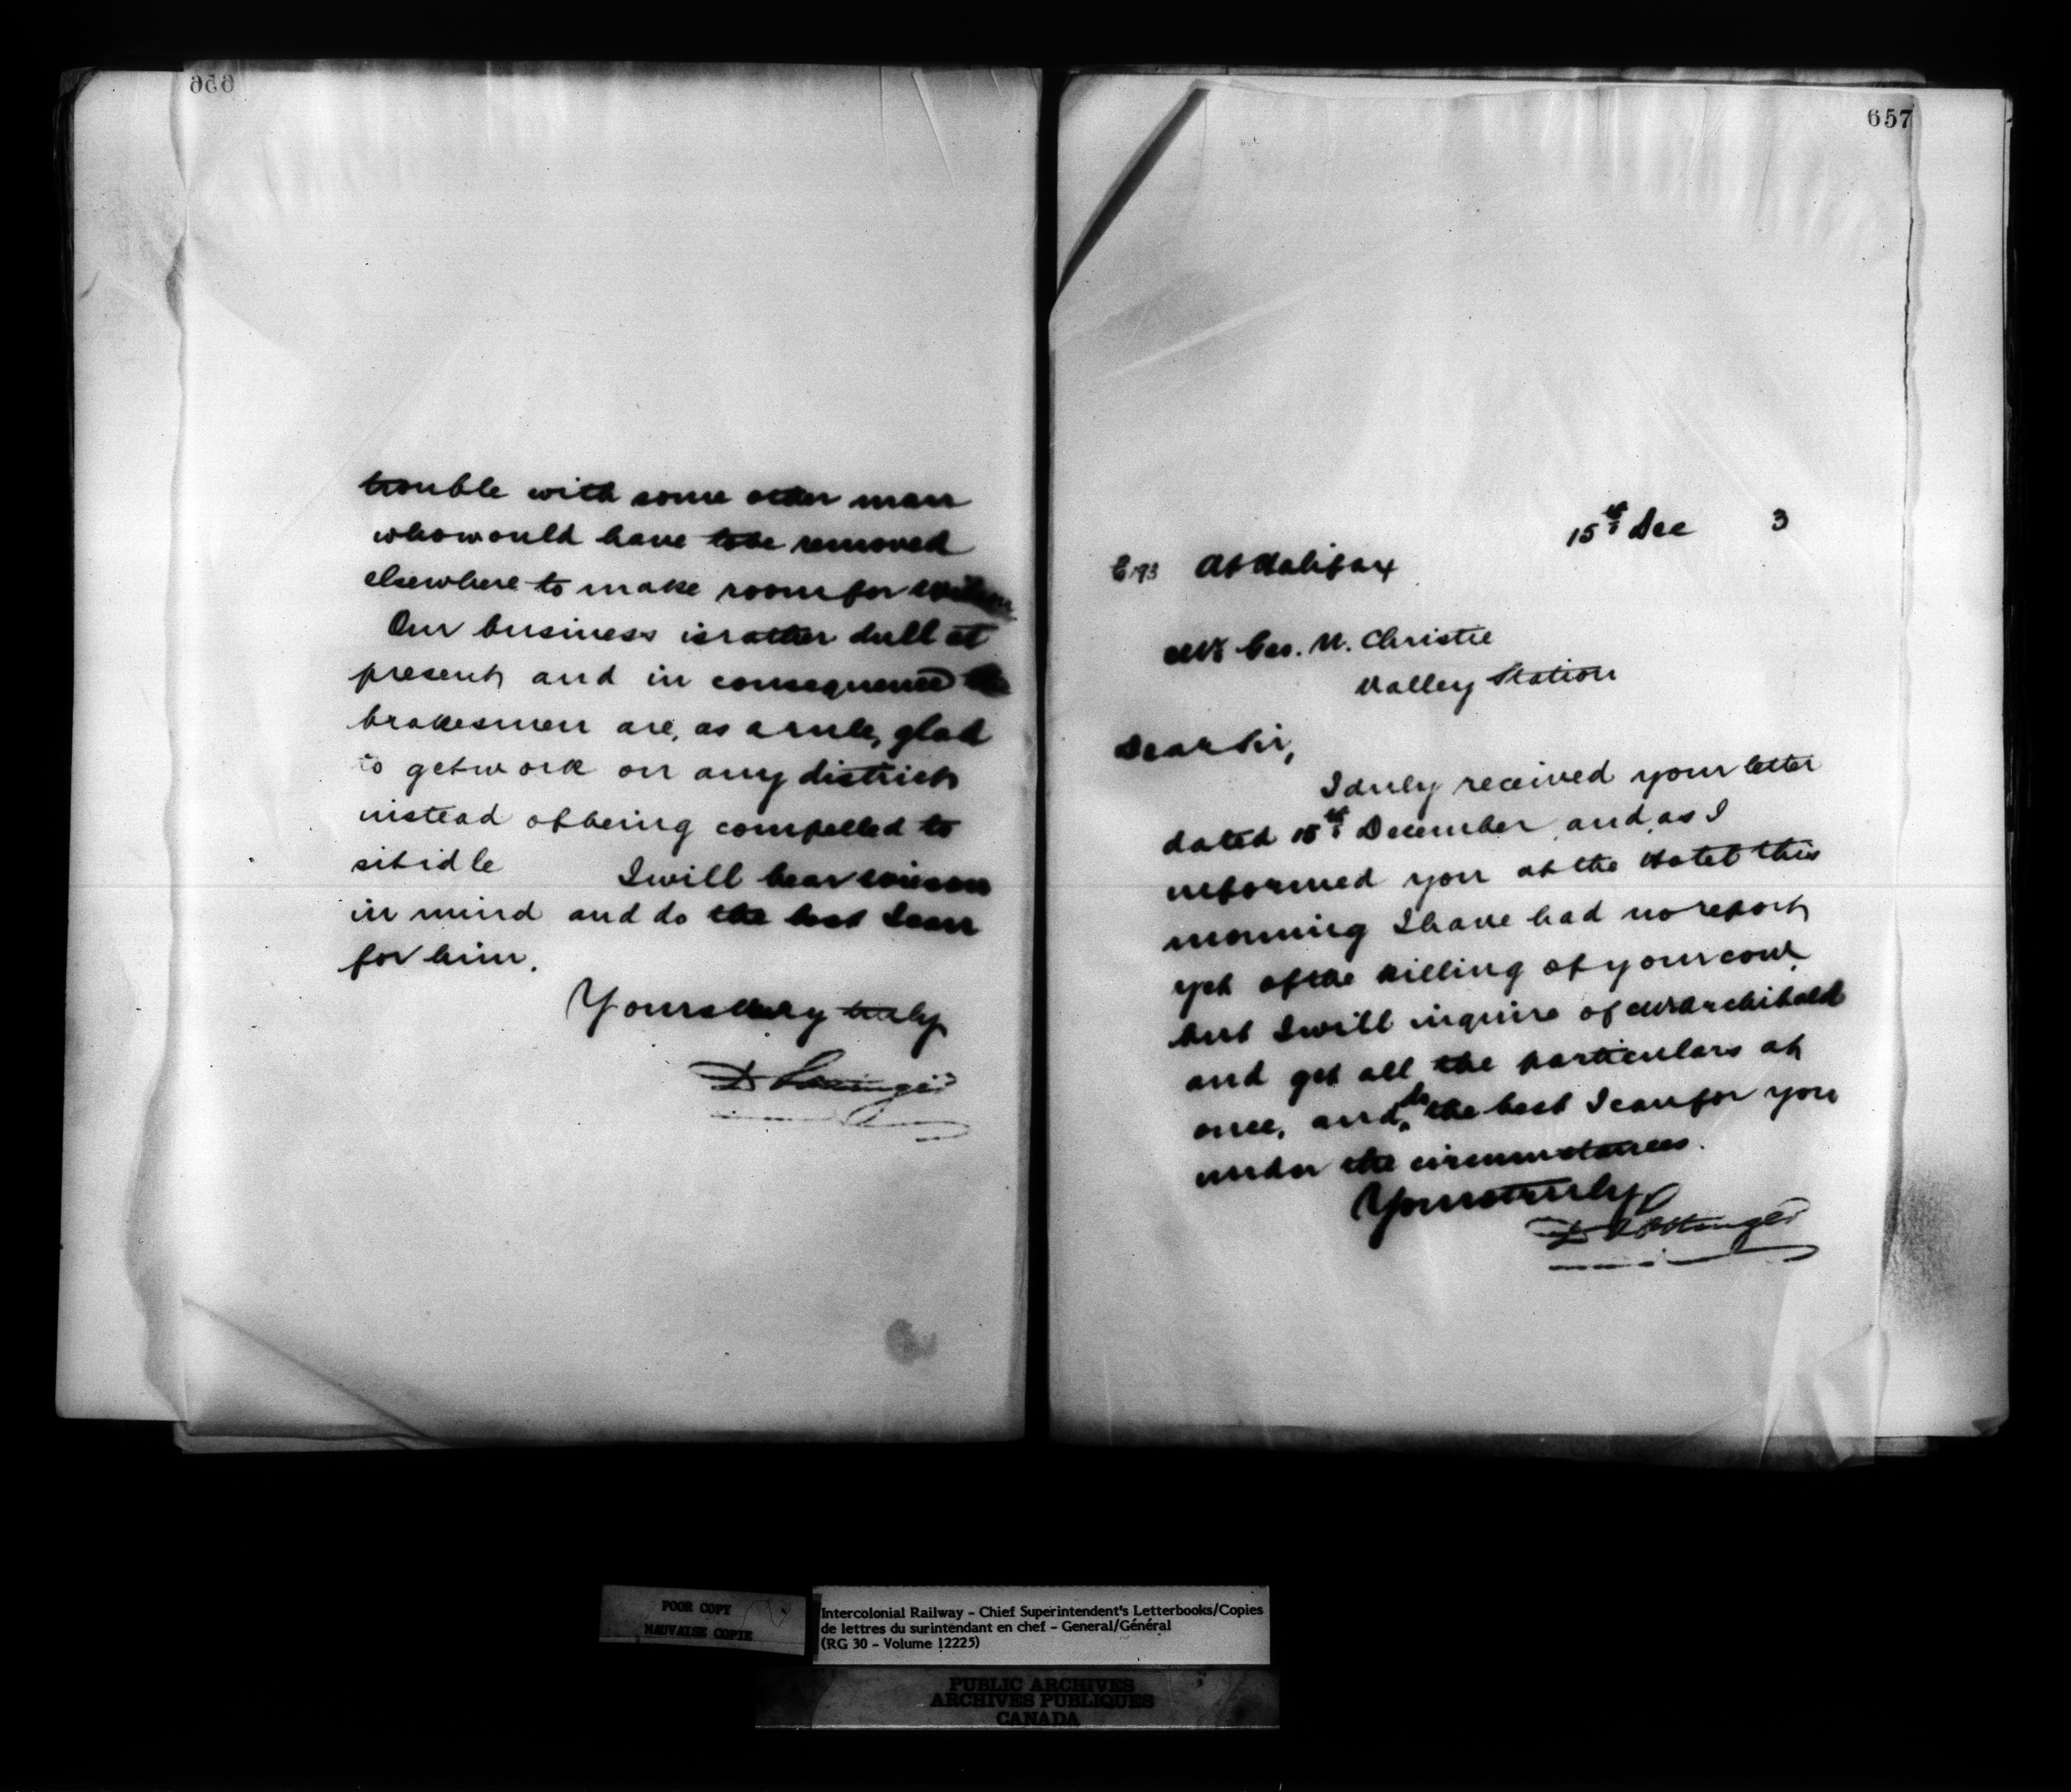 656
trouble with some other man
who would have to be removed
elsewhere to make room for Wilson
Our business is rather dull at
present, and in consequence the
brakesmen are, as a rule, glad
to get work on any district
instead of being compelled to
sit idle I will bear Wilson
in mind and do the best I can
for him.
Yours very truly
D Pottinger
657
15th Dec 3
At Halifax
Mr Geo. N. Christie
Valley Station
Dear Sir,
I duly received your letter
dated 15th December, and as I
informed you at the Hotel this
morning I have had no report
yet of the killing of your cow,
but I will inquire of Mr Archibald
and get all the particulars at
once, and do the best I can for you
under the circumstances.
Yours truly
D Pottinger
POOR COPY
MAUVAISE COPIE
Intercolonial Railway - Chief Superintendent's Letterbooks/Copies
de lettres du surintendant en chef - General/Général
(RG 30 - Volume 12225)
PUBLIC ARCHIVES
ARCHIVES PUBLIQUES
CANADA